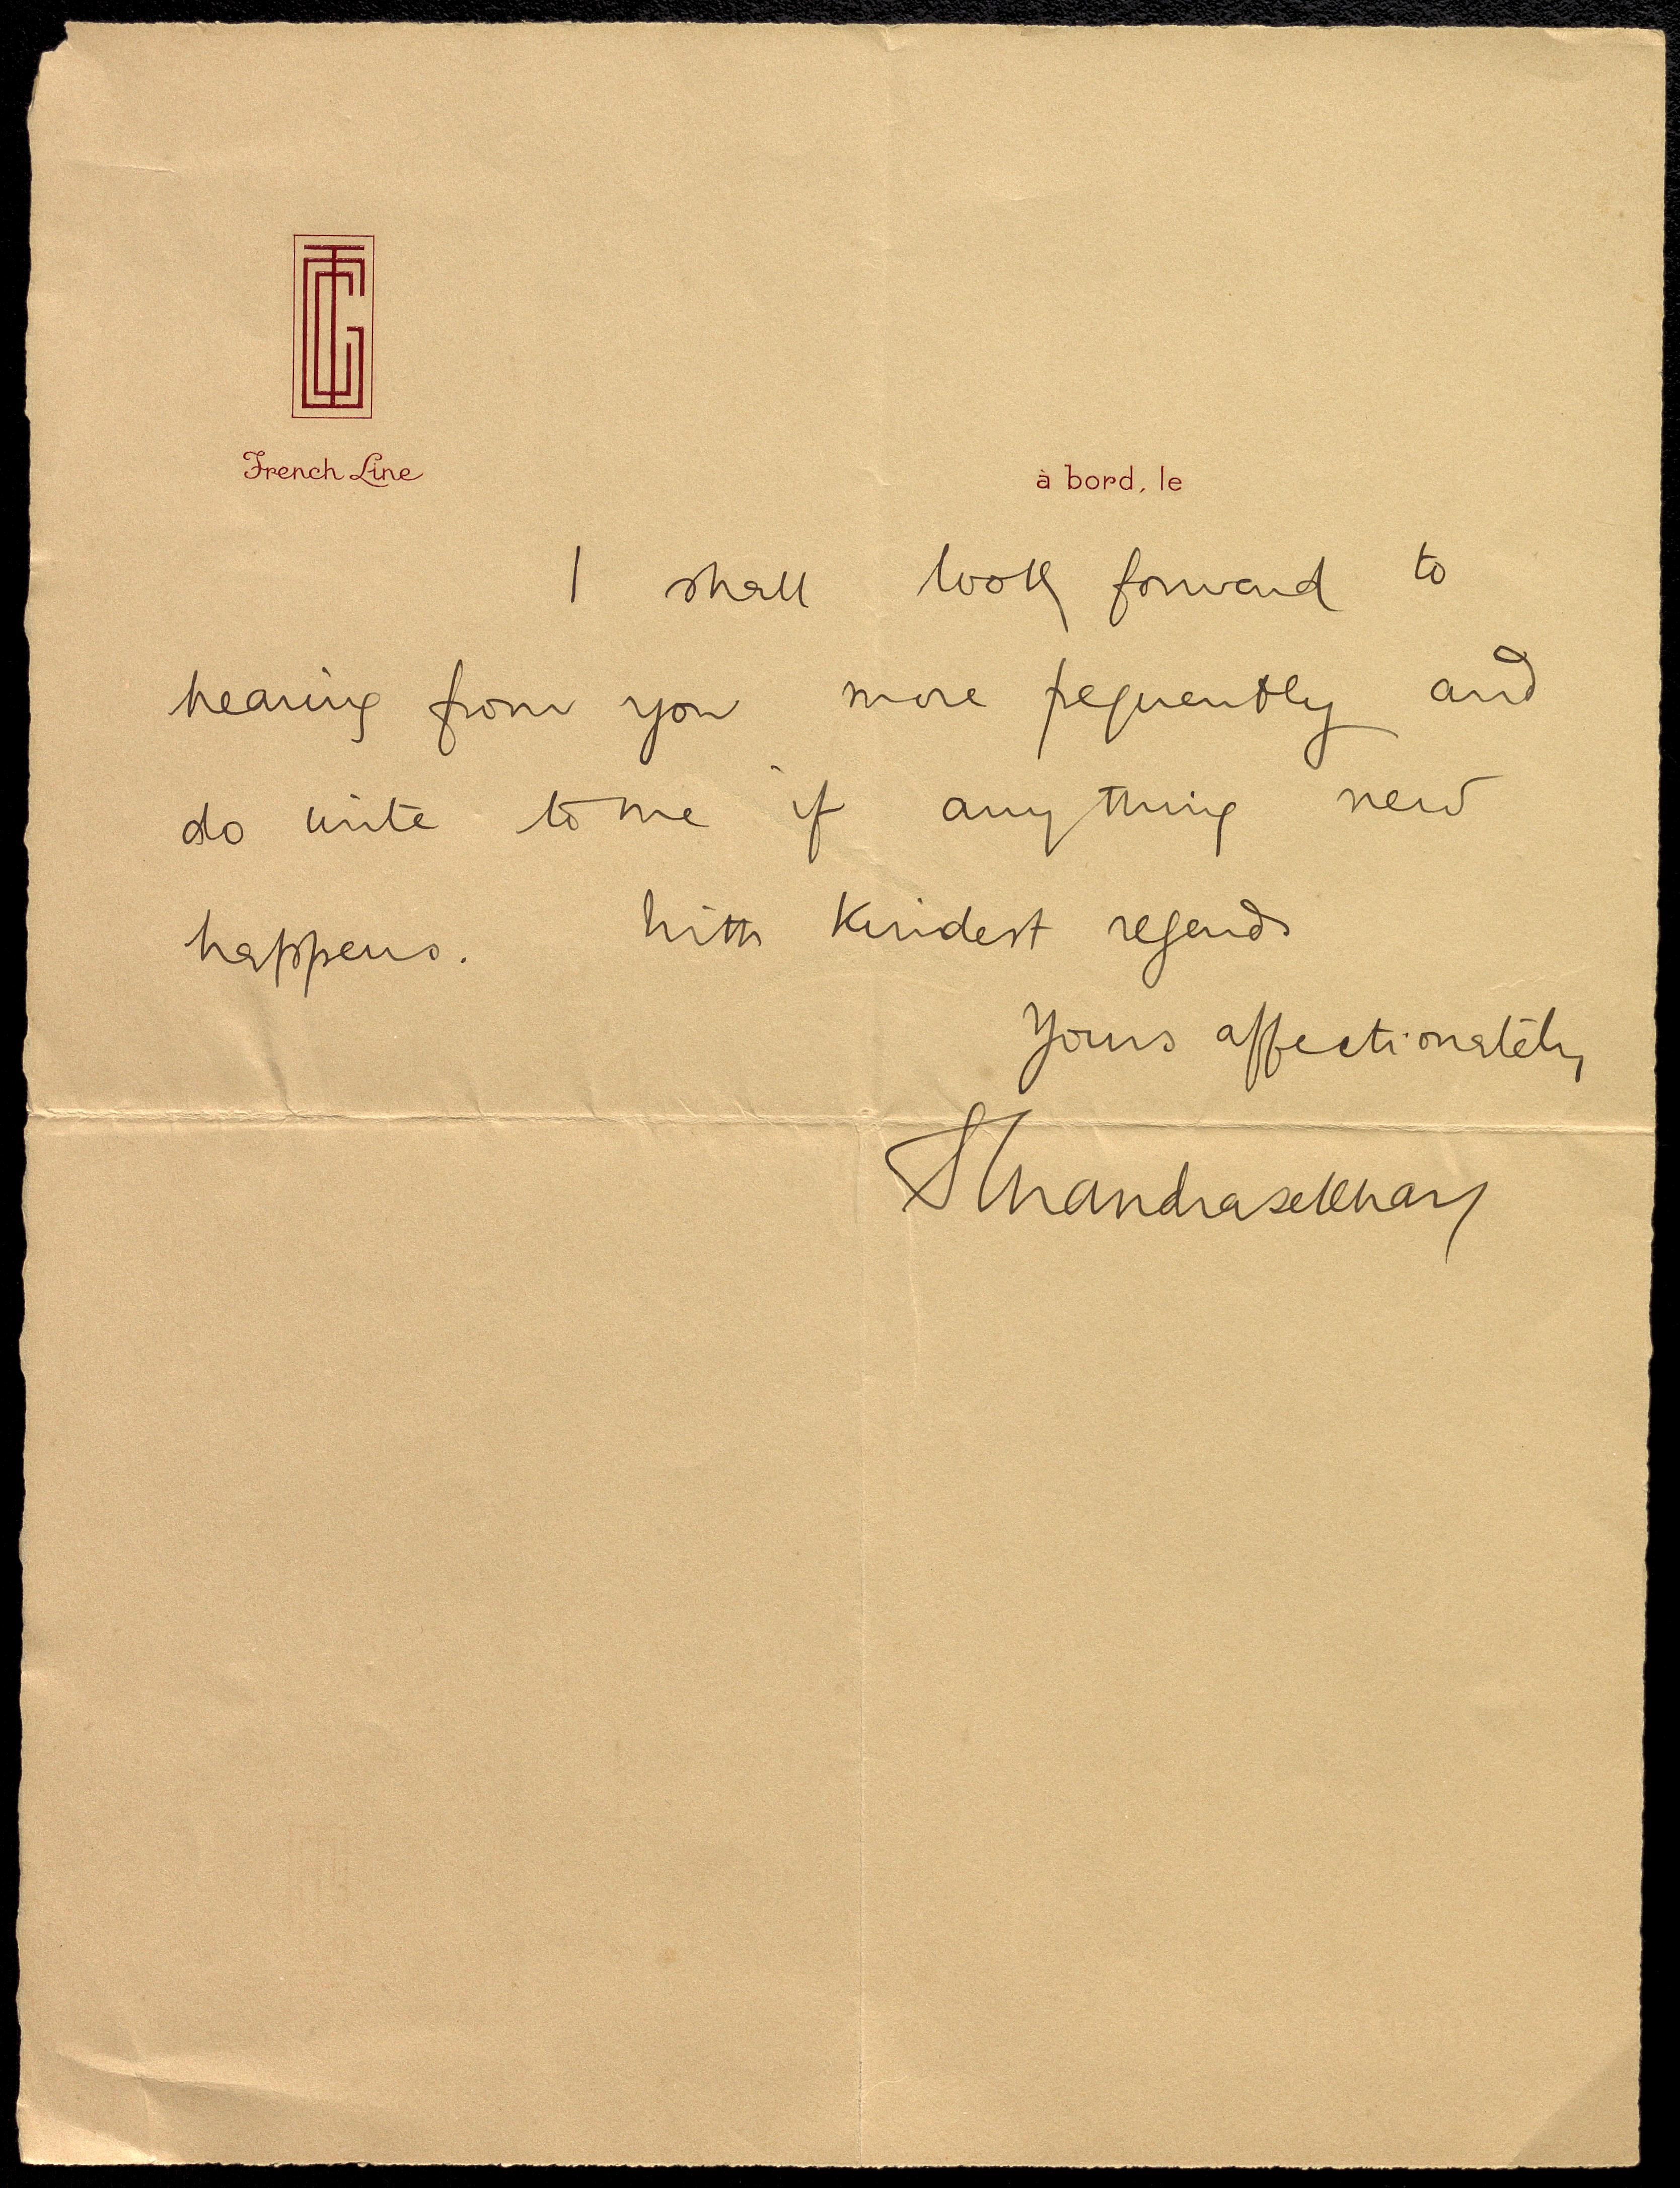 CGT
French Line
à bord, le
I shall look forward to
hearing from you more frequently and
do write to me if anything new
happens. With kindest regards
Yours affectionately
S Chandrasekhar